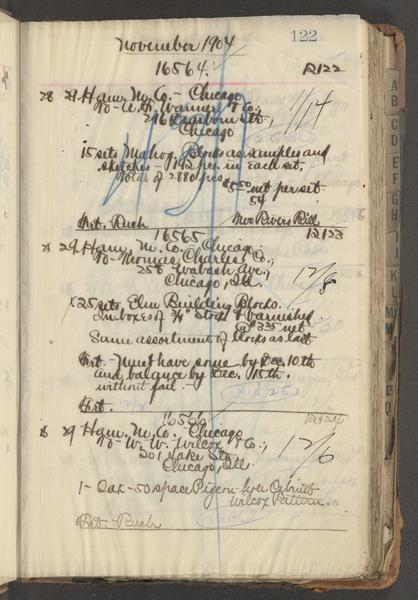 November 1904
122
16564. R122
28 29 Ham. M. Co. - Chicago
To - A. H. & Co.,
Dearborn St.,
Chicago
11/14
15 sets Mahog. Blocks as samples and
sketches - 192 pcs. in each set.
Total of 2880 pcs.
$5.50 net per set
Frt. Rush
16565 R123
29 Ham. M. Co. Chicago.
To - Thomas Charles Co.,
258 Wabash Ave.,
Chicago, Ill.
12/8
25 sets, Elm Building Blocks.
In boxes of 3/4" Stock & varnished.
@ 3.35 net
Same assortment of blocks as last
Frt. - Must have some by Dec. 10th
and balance by Dec. 15th.
without fail. -
Frt.
16566
29 Ham. M. Co. - Chicago
To - W. W. Wilcox & Co.,
201 Lake St.
Chicago, Ill.
12/6
1 - Oak - 50 space Pigeon hole Cabinet
Wilcox Pattern.
Frt. - Rush
A
B
C
D
E
F
G
H
I
J
K
L
M